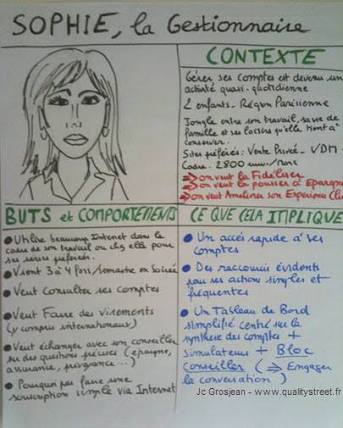 SOPHIE, la Gestionnaire
CONTEXTE
Gérer ses comptes est devenu une
activité quasi-quotidienne
2 enfants. Région Parisienne
Jongle entre son travail, sa vie de
famille et ses loisirs qu'elle tient à
conserver.
Sites préférés: Vente Privée - VDM -
Cadre: 2800 euros/mois
⇒ On veut la Fidéliser
⇒ On veut la pousser à Epargner
⇒ On veut Améliorer son Expérience Cli
BUTS et COMPORTEMENTS
● Utilise beaucoup Internet dans le
cadre de son travail ou chez elle pour
ses loisirs préférés.
● Vient 3 à 4 fois/semaine en soirée
● Veut Consulter ses comptes
● Veut Faire des virements
(y compris internationaux)
● Veut échanger avec son conseiller
sur des questions précises (épargne,
assurance, prévoyance...)
● Pourquoi pas faire une
souscription simple via Internet
CE QUE CELA IMPLIQUE
● Un accès rapide à ses
comptes
● Des raccourcis évidents
pour ses actions simples et
fréquentes
● Un Tableau de Bord
simplifié centré sur la
synthèse des comptes +
simulateurs + Bloc
conseiller (⇒ Engager
la conversation)
Jc Grosjean - www.qualitystreet.fr